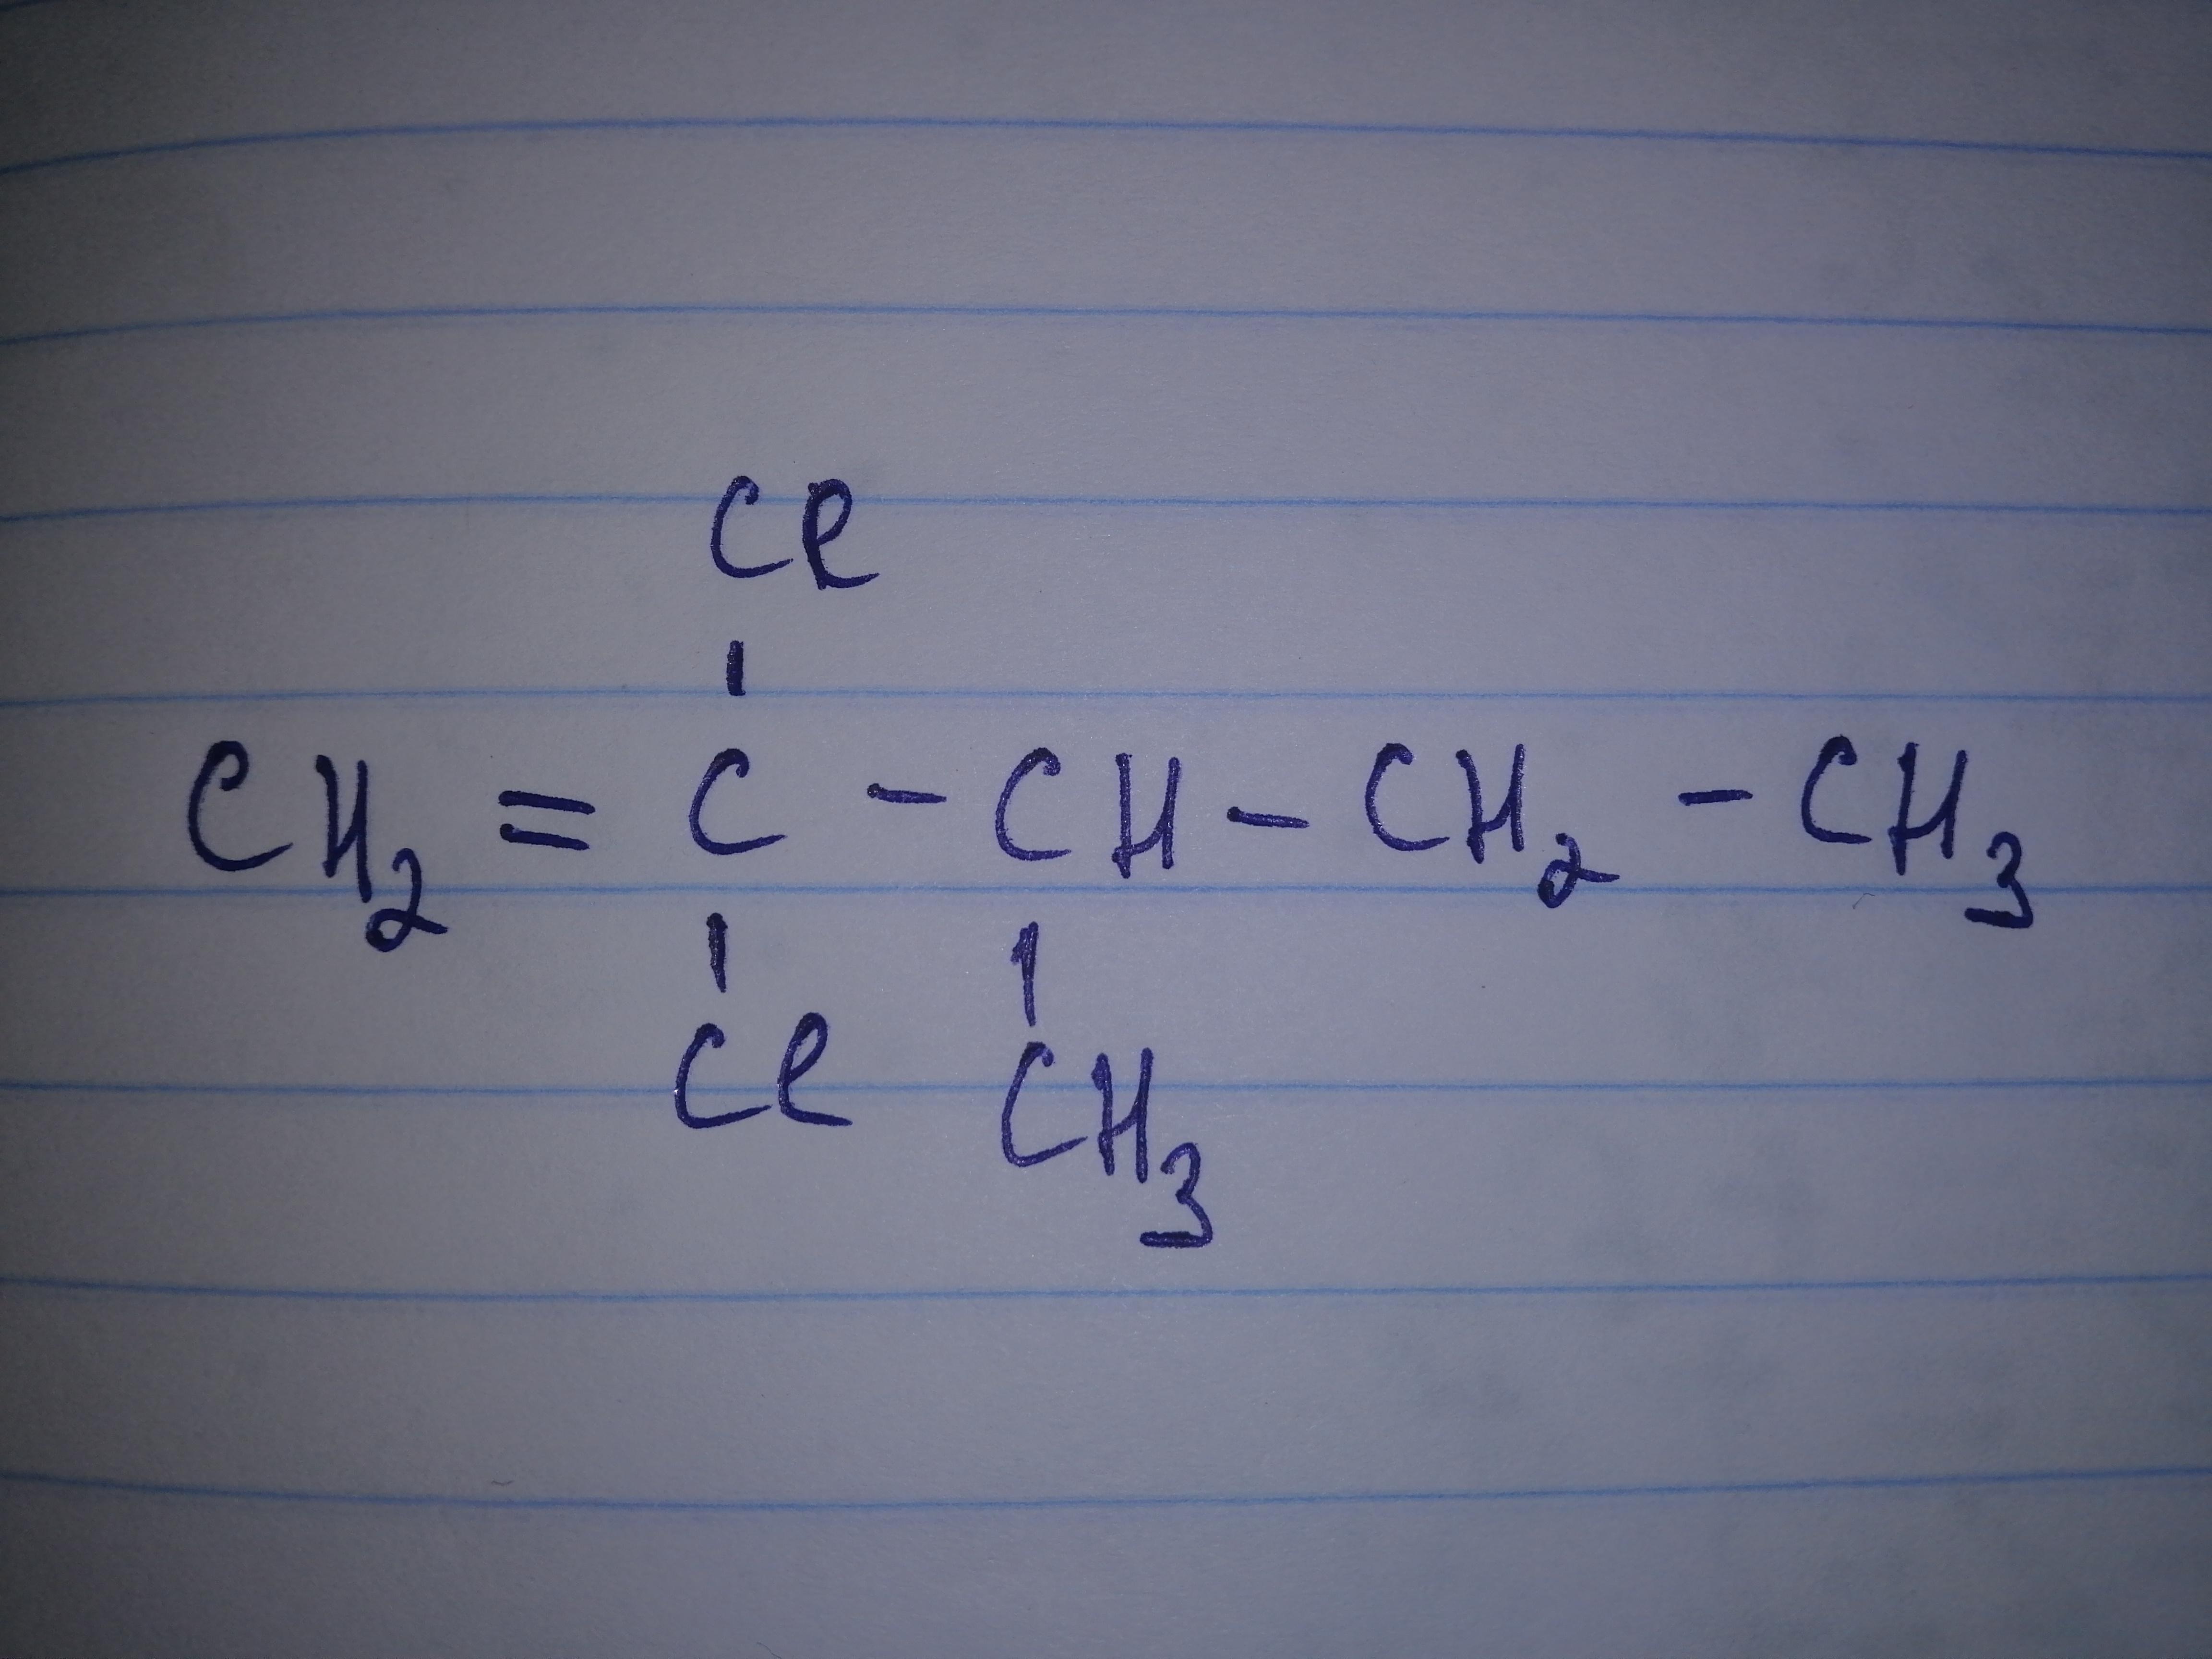 Cl
CH₂ = C - CH - CH₂ - CH₃
Cl CH₃